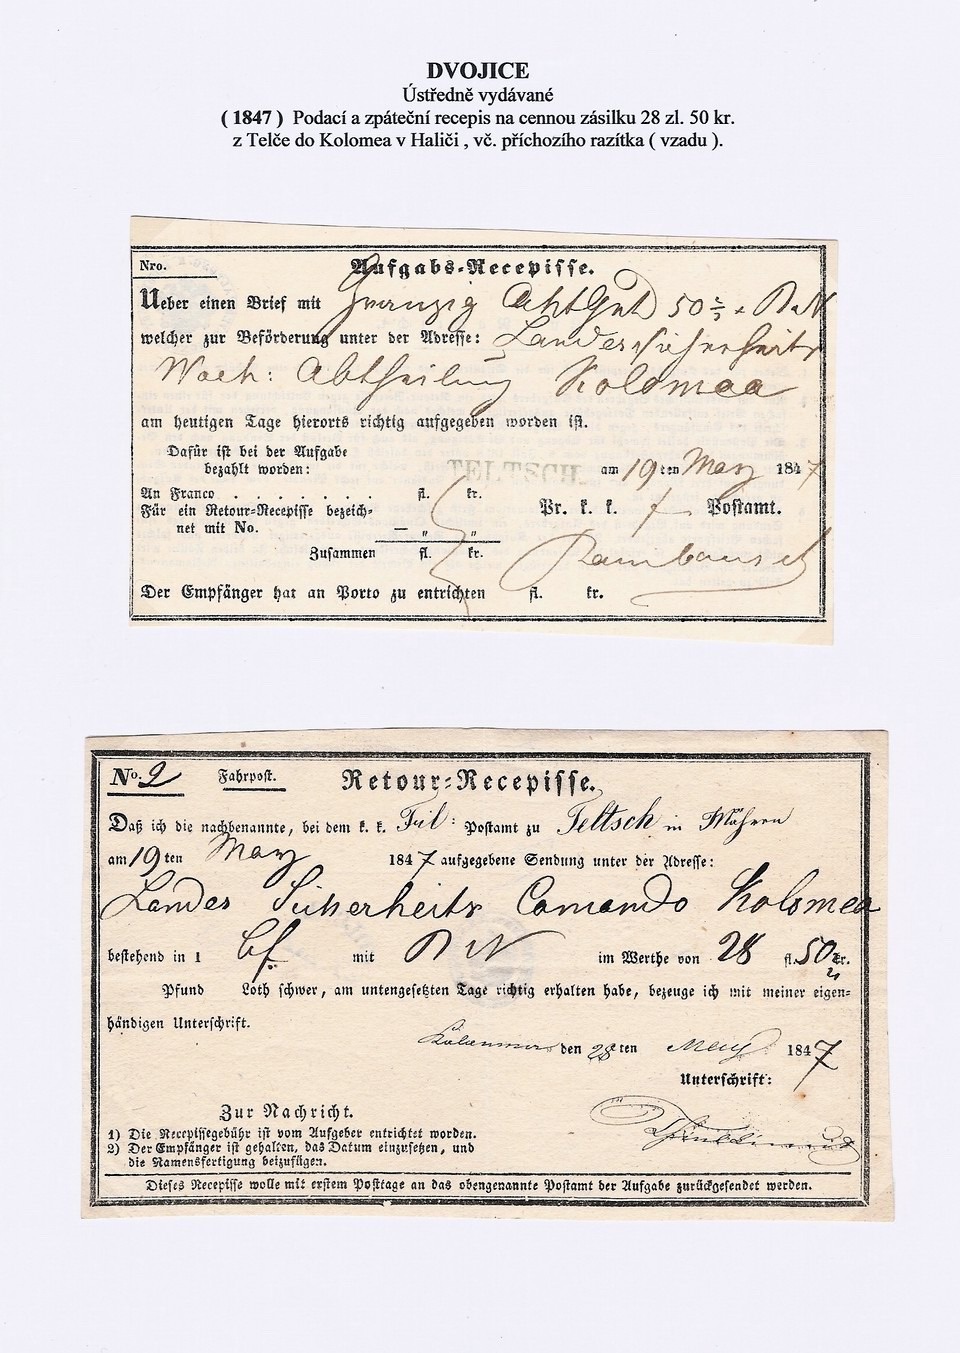 DVOJICE
Ústředně vydávané
( 1847 ) Podací a zpáteční recepis na cennou zásilku 28 zl. 50 kr.
z Telče do Kolomea v Haliči , vč. příchozího razítka ( vzadu ).
Nro.
Aufgabs-Recepisse.
Ueber einen Brief mit Zwanzig Acht Guld 50 BN
welcher zur Beförderung unter der Adresse: Landessicherheits
Wach: Abtheilung Kolomea
am heutigen Tage hierorts richtig aufgegeben worden ist.
Dafür ist bei der Aufgabe
bezahlt worden:
TELTSCH.
am 19 ten May 1847
An Franco . . . . . . . fl. kr.
Für ein Retour-Recepisse bezeich-
net mit No. — „ „
Pr. k. k. Postamt.
Zusammen fl. kr.
Der Empfänger hat an Porto zu entrichten fl. kr.
No. 2
Fahrpost.
Retour-Recepisse.
Daß ich die nachbenannte, bei dem k. k. Fil: Postamt zu Teltsch in Mähren
am 19 ten May 1847 aufgegebene Sendung unter der Adresse:
Landes Sicherheits Comando Kolomea
bestehend in 1 Bf. mit BN im Werthe von 28 fl. 50 kr.
Pfund Loth schwer, am untengesetzten Tage richtig erhalten habe, bezeuge ich mit meiner eigen-
händigen Unterschrift.
den 28 ten May 1847
Unterschrift:
Zur Nachricht.
1) Die Recepissegebühr ist vom Aufgeber entrichtet worden.
2) Der Empfänger ist gehalten, das Datum einzusetzen, und
die Namensfertigung beizufügen.
Dieses Recepisse wolle mit erstem Posttage an das obengenannte Postamt der Aufgabe zurückgesendet werden.